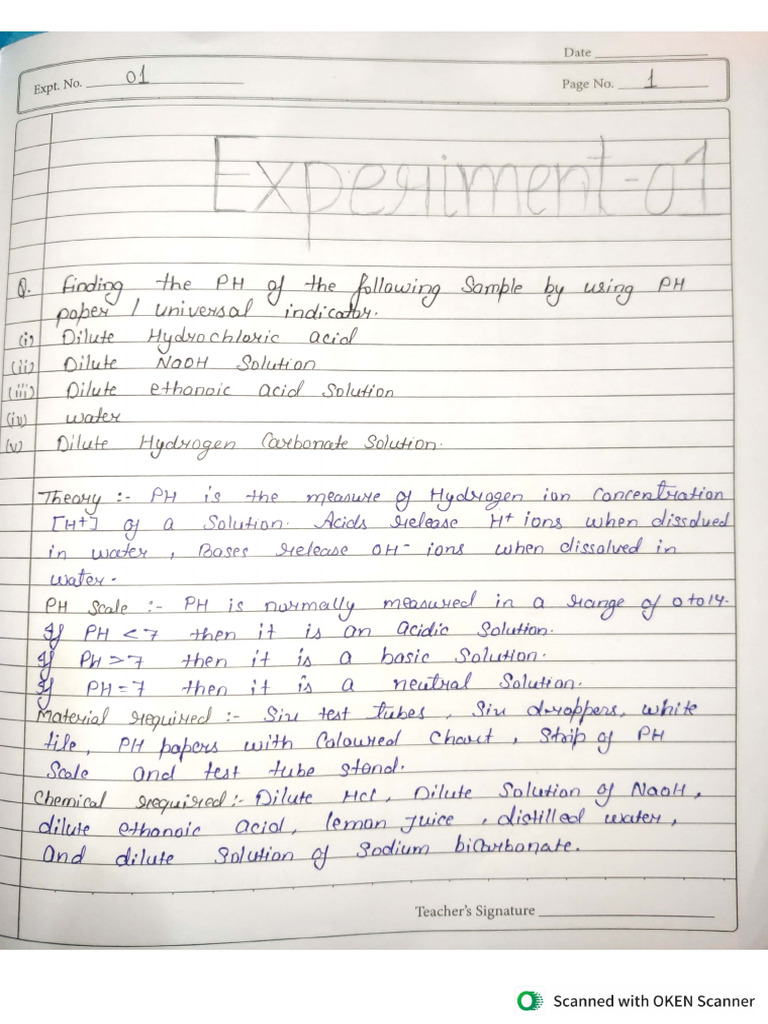 Date
Expt. No. 01
Page No. 1
Experiment-01
Q. Finding the PH of the following Sample by using PH
paper / universal indicator.
(i) Dilute Hydrochloric acid
(ii) Dilute NaOH Solution
(iii) Dilute ethanoic acid Solution
(iv) water
(v) Dilute Hydrogen Carbonate Solution.
Theory :- PH is the measure of Hydrogen ion Concentration
[H+] of a Solution. Acids release H+ ions when dissolved
in water, Bases release OH- ions when dissolved in
water.
PH Scale :- PH is normally measured in a range of 0 to 14.
If PH < 7 then it is an acidic Solution.
If PH > 7 then it is a basic Solution.
If PH = 7 then it is a neutral Solution.
Material required :- Six test tubes, Six droppers, white
tile, PH papers with Coloured Chart, Strip of PH
Scale and test tube stand.
Chemical required :- Dilute Hcl, Dilute Solution of NaOH,
dilute ethanoic acid, lemon juice, distilled water,
and dilute Solution of Sodium bicarbonate.
Teacher's Signature
Scanned with OKEN Scanner